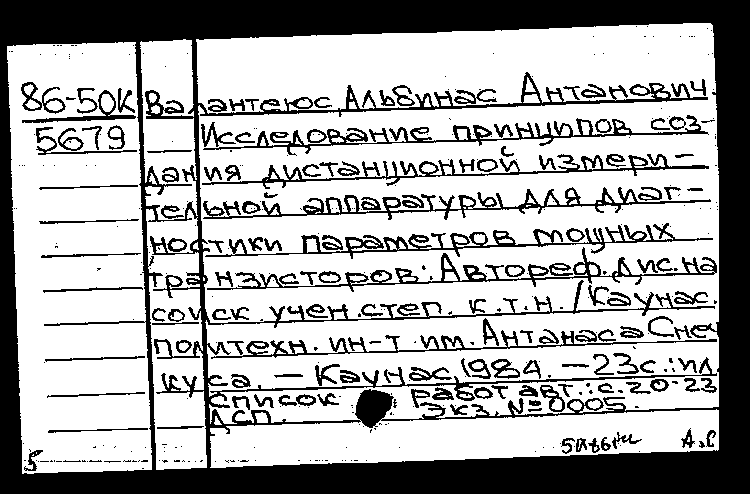 86-50К Валантеюс, Альбинас Антанович.
5679 Исследование принципов соз-
дания дистанционной измери-
тельной аппаратуры для диаг-
ностики параметров мощных
транзисторов: Автореф. дис. на
соиск. учен. степ. к.т.н. / Каунас.
политехн. ин-т им. Антанаса Снеч
куса. — Каунас, 1984. — 23с.: ил.
Список работ авт.: с. 20-23
ДСП. Экз. №0005.
5 А.С